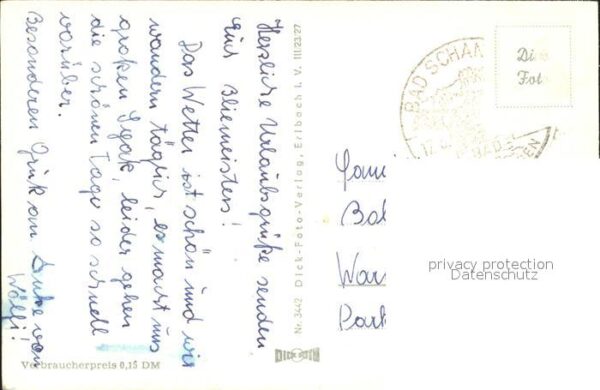 Herzliche Urlaubsgrüße senden
Eure Bliemeisters!
Das Wetter ist schön und wir
wandern täglich, es macht uns
großen Spaß, leider gehen
die schönen Tage so schnell
vorüber.
Besonderen Gruß an von
Wölfi!
Verbraucherpreis 0,15 DM
Nr. 3442 Dick-Foto-Verlag, Erlbach i. V. III 23 27
DICK FOTO
BAD SCHAN
17
Di
Fot
Fami
Bad
Par
privacy protection
Datenschutz